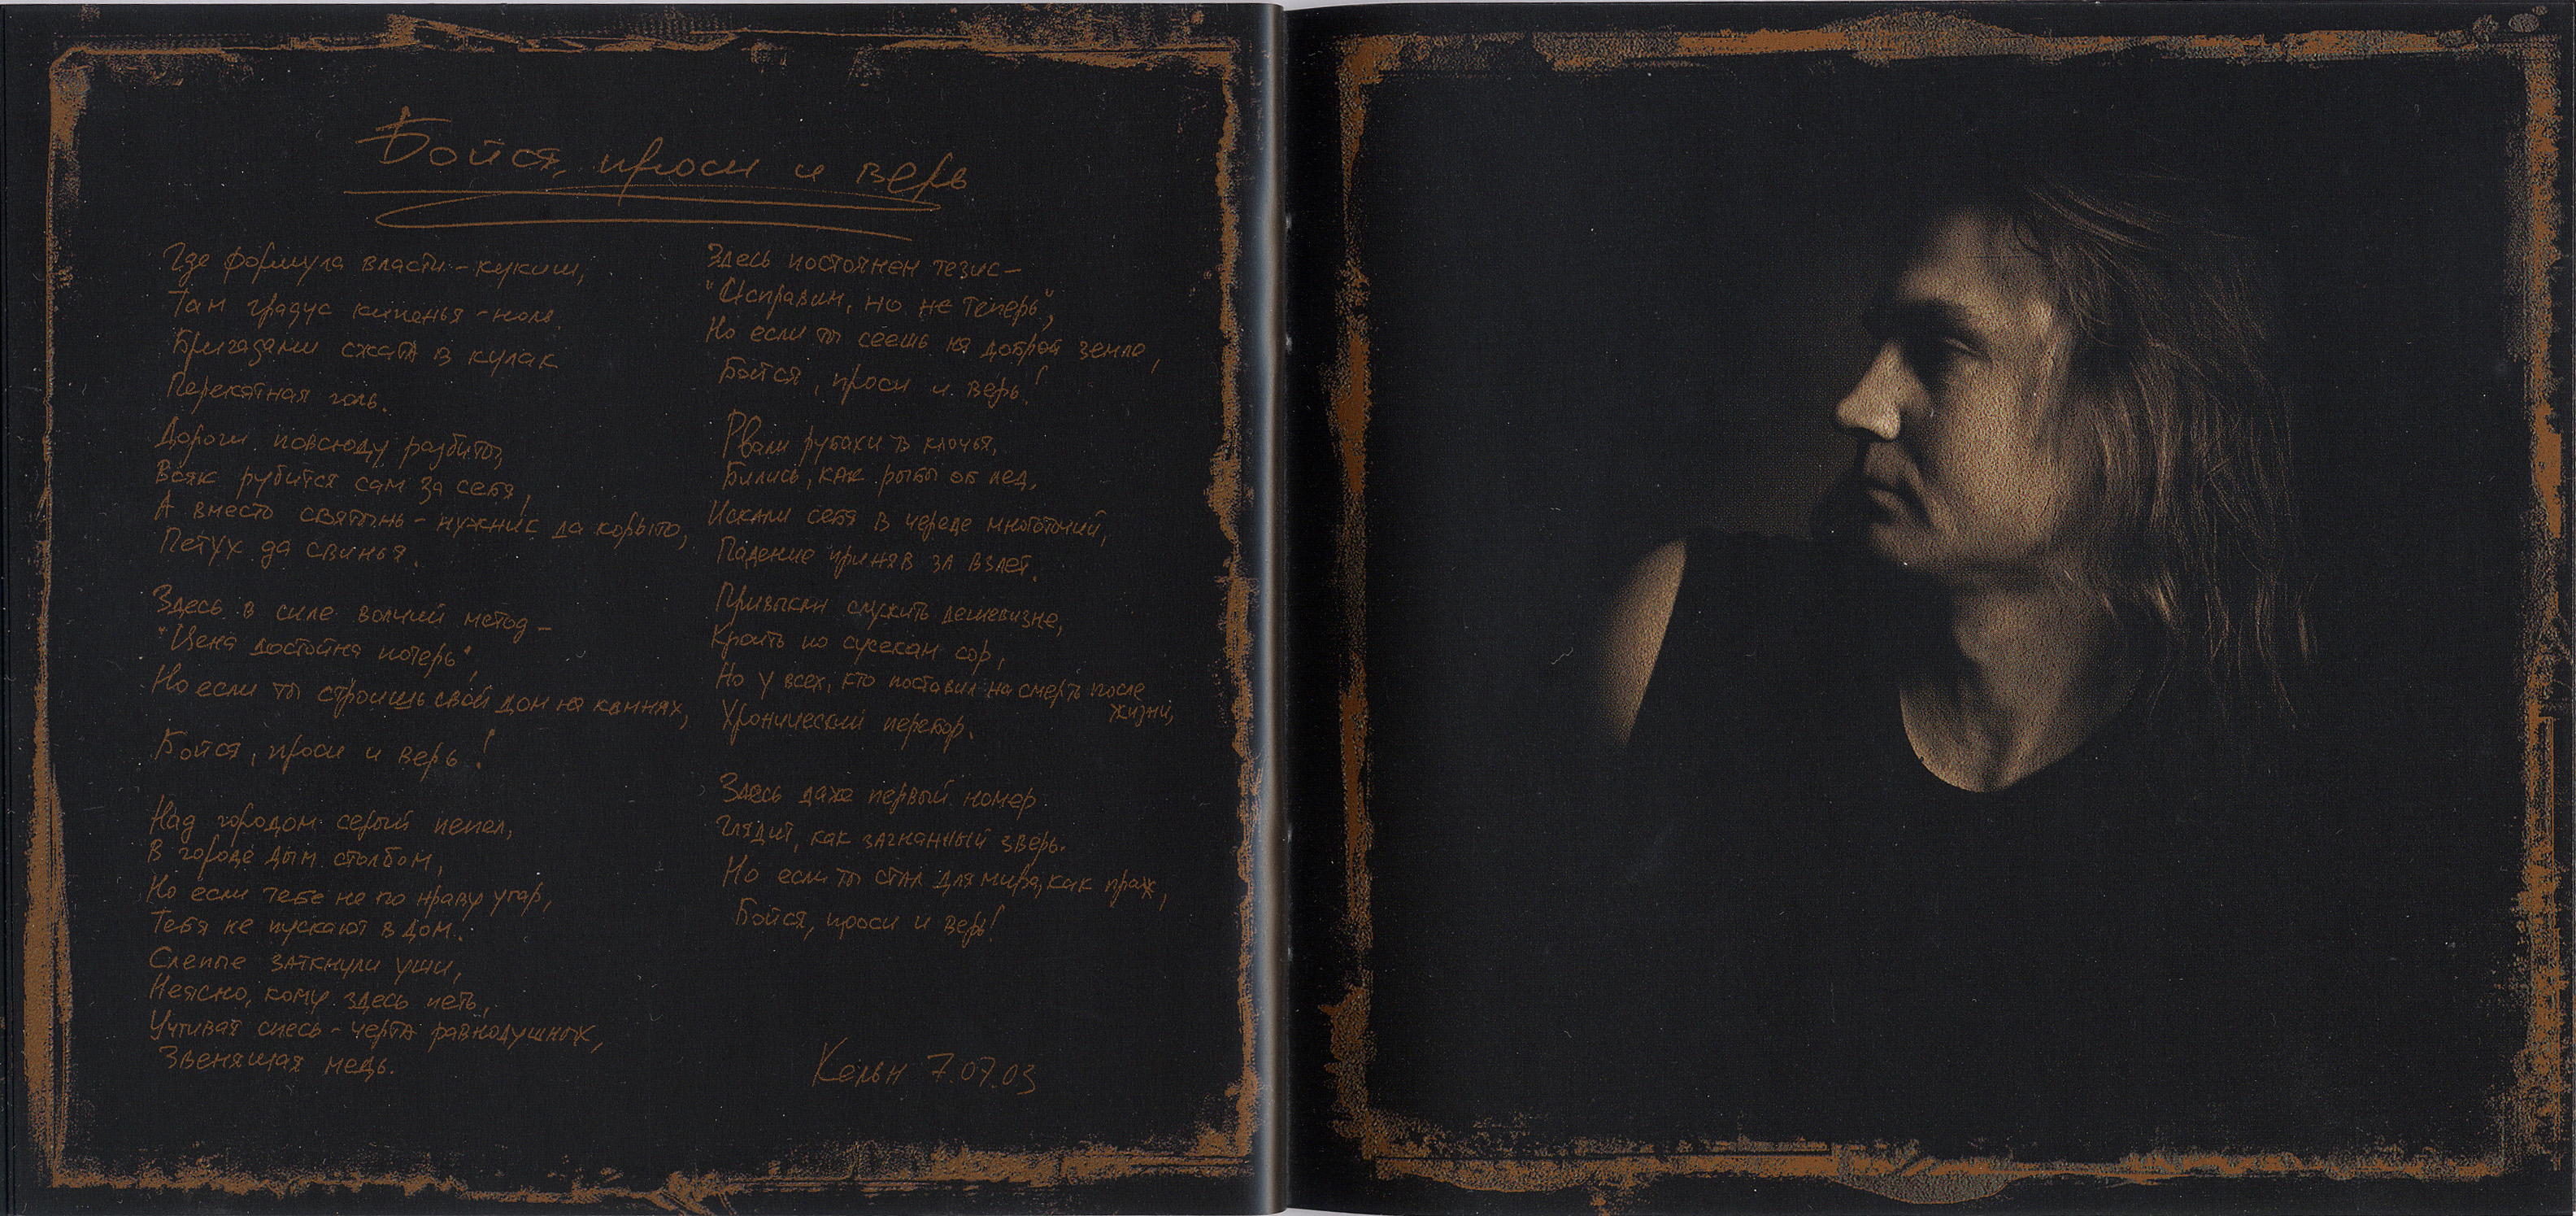 Бойся, проси и верь
Где формула власти - кукиш,
Там градус кипенья - ноль.
Бригадами сжата в кулак
Перекатная голь.
Дороги повсюду разбиты,
Всяк рубится сам за себя,
А вместо святынь - нужник да корыто,
Петух да свинья.
Здесь в силе волчий метод -
"Цена достойна потерь",
Но если ты строишь свой дом на камнях,
Бойся, проси и верь!
Над городом серый пепел,
В городе дым столбом,
Но если тебе не по нраву угар,
Тебя не пускают в дом.
Слепые заткнули уши,
Неясно, кому здесь петь,
Учтивая спесь - черта равнодушных,
Звенящая медь.
Здесь постоянен тезис -
"Исправим, но не теперь",
Но если ты сеешь на доброй земле,
Бойся, проси и верь!
Рвали рубахи в клочья,
Бились, как рыбы об лед,
Искали себя в череде многоточий,
Падение приняв за взлет.
Привыкли служить дешевизне,
Кроить по сусекам сор,
Но у всех, кто поставил на смерть после
жизни,
Хронический перебор.
Здесь даже первый номер
Глядит, как загнанный зверь.
Но если ты стал для мира, как прах,
Бойся, проси и верь!
Кельн 7.07.03